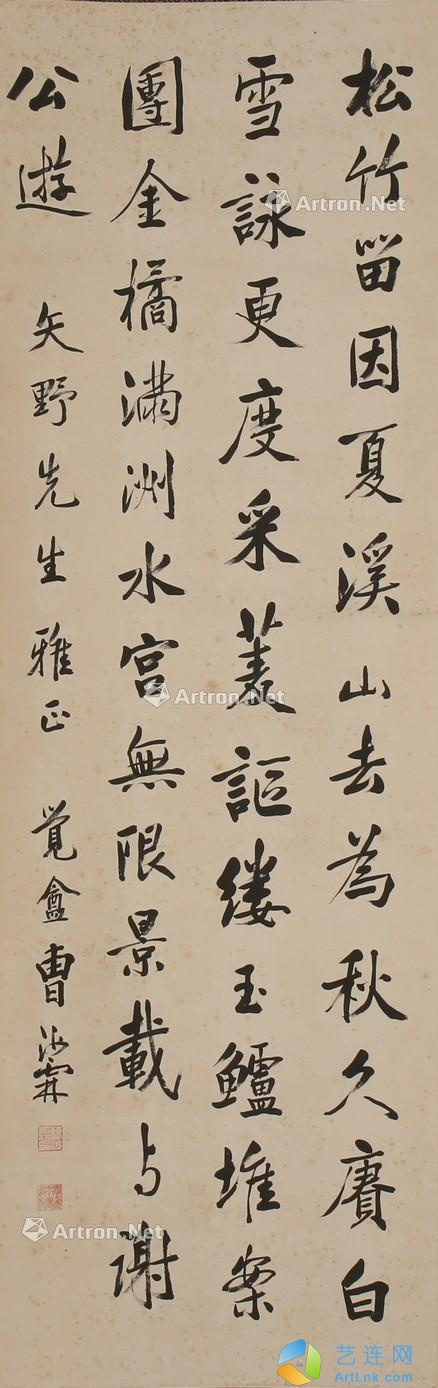 松竹留因夏溪山去為秋久賡白
雪詠更度采菱謳縷玉鱸堆案
團金橘滿洲水宮無限景載与謝
公遊
矢野先生雅正 覺盦曹汝霖
Artron.Net
Artron.Net
Artron.Net
Artron.Net
艺连网
ArtLink.com